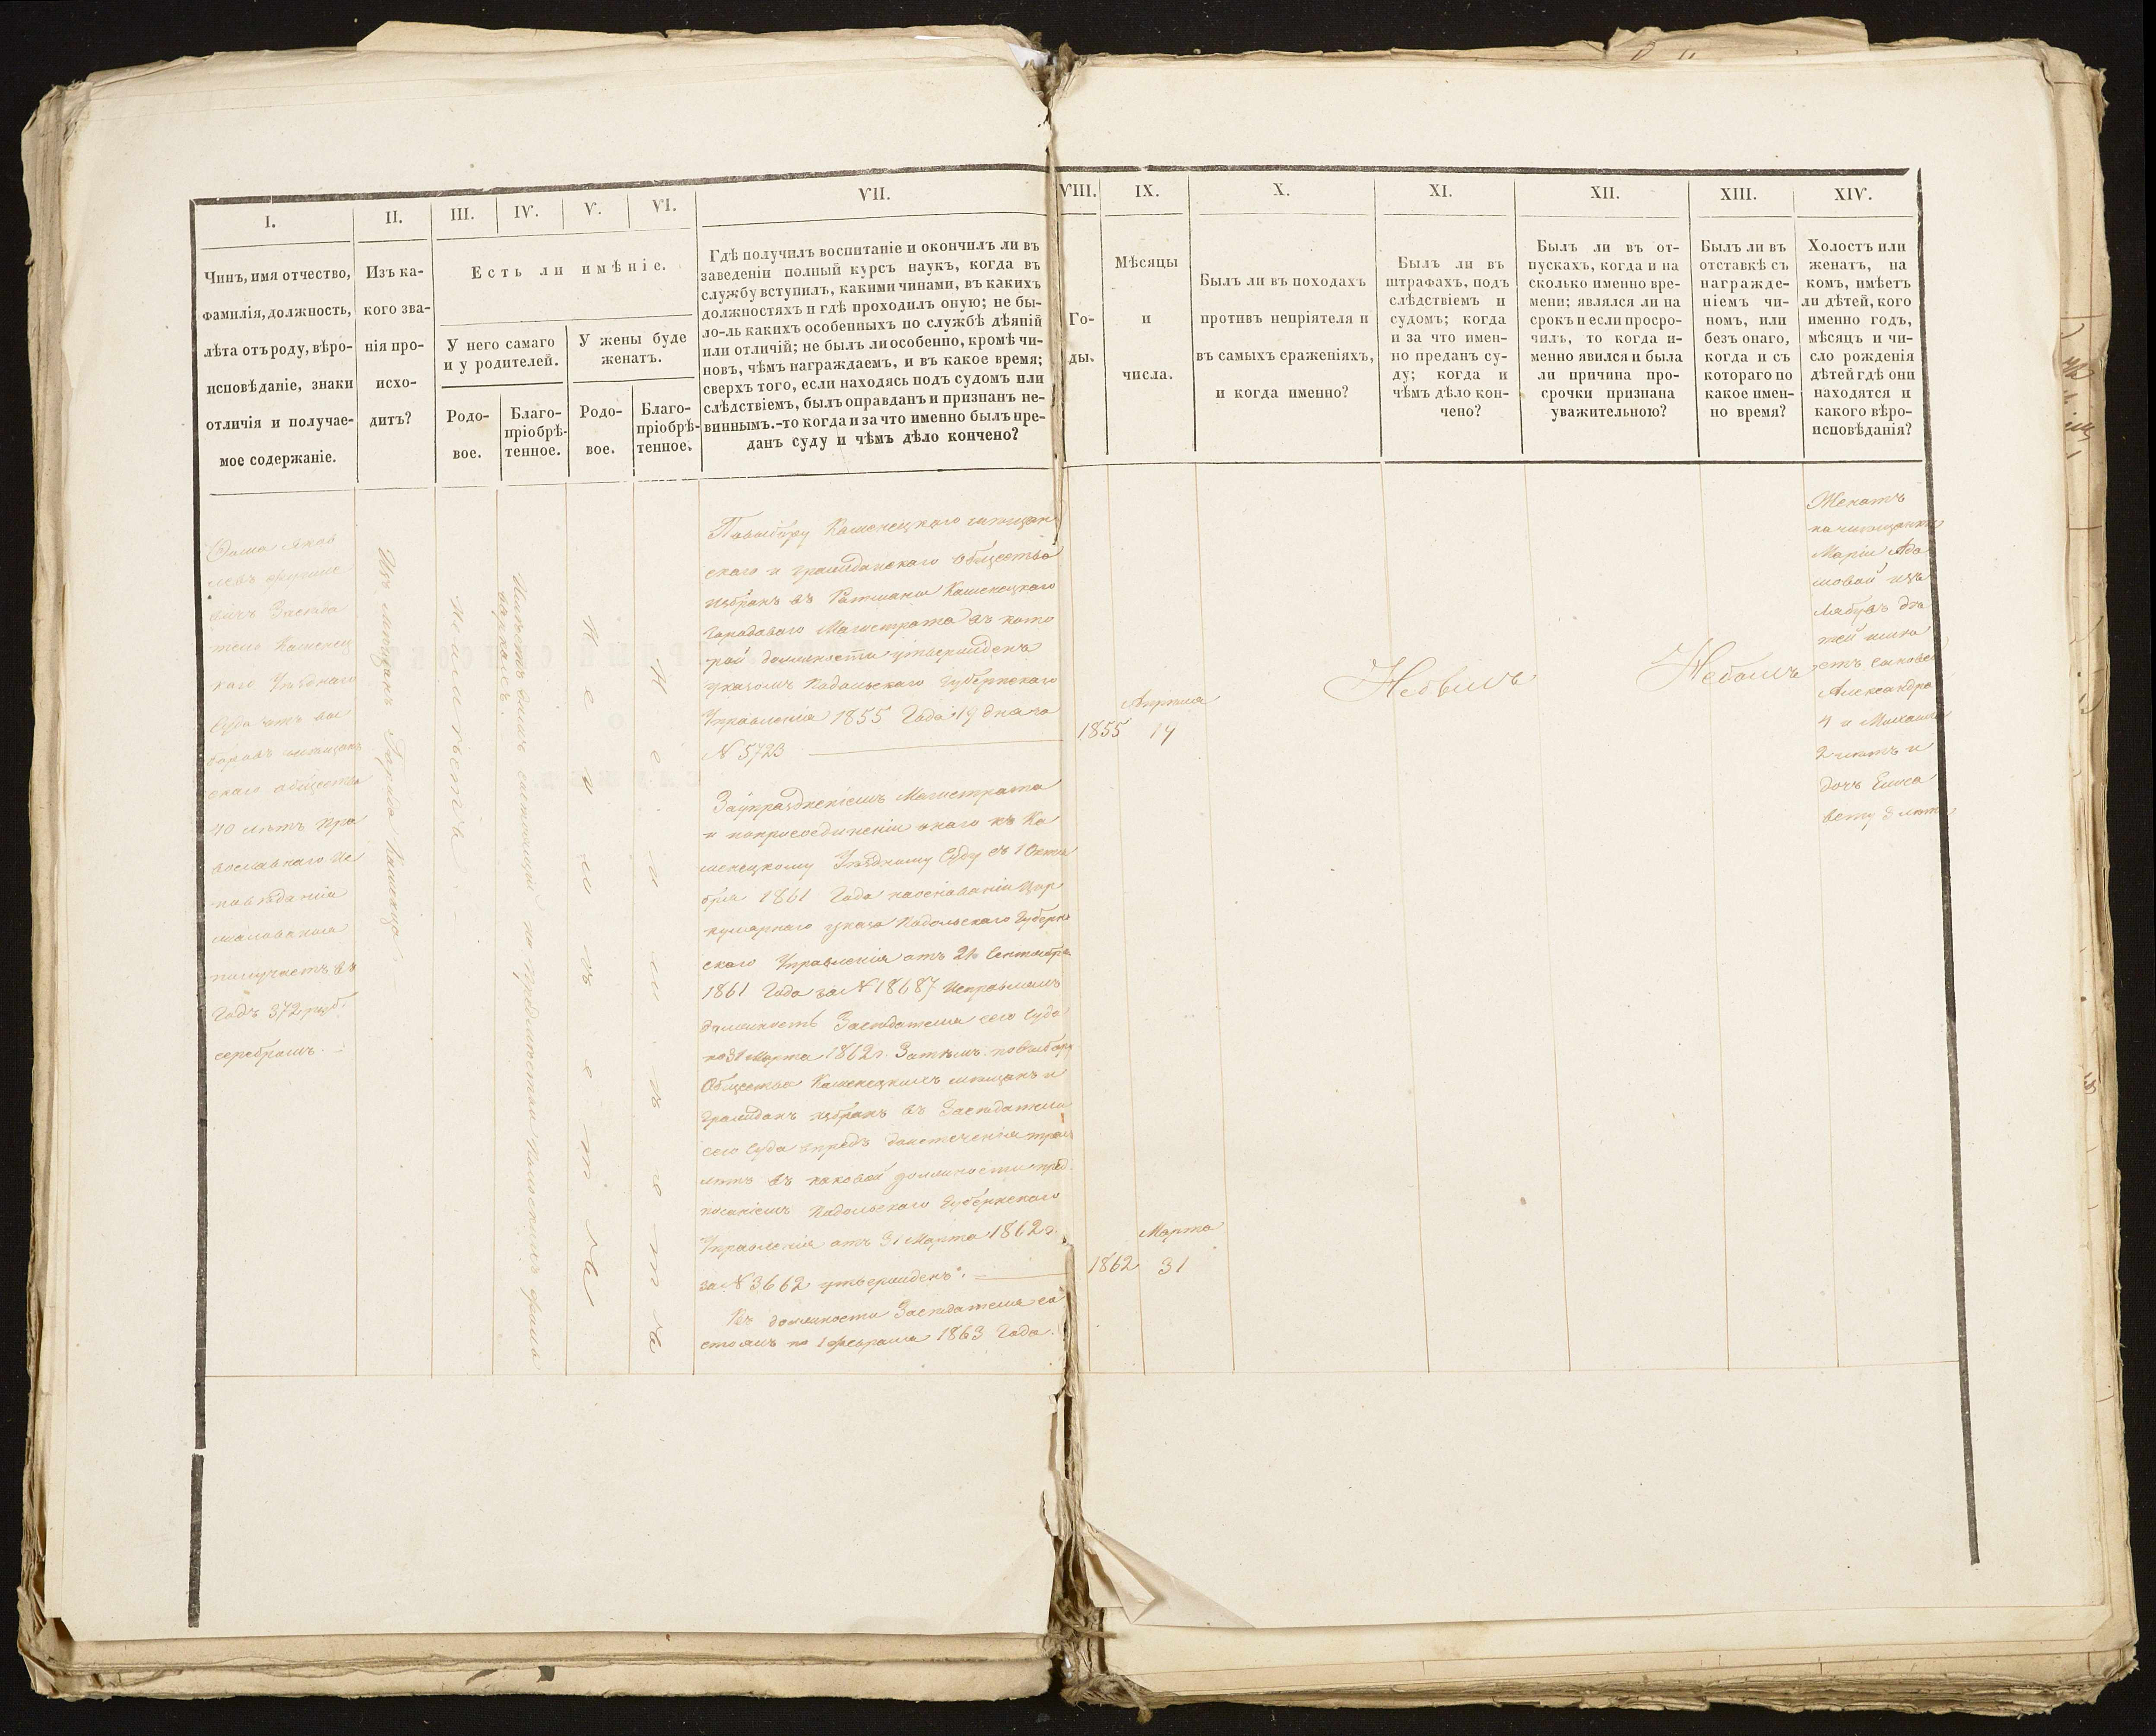 I.
II.
III.
IV.
V.
VI.
VII.
VIII.
IX.
X.
XI.
XII.
XIII.
XIV.
Чинъ, имя отчество,
фамилія, должность,
лѣта отъ роду, вѣро-
исповѣданіе, знаки
отличія и получае-
мое содержаніе.
Изъ ка-
кого зва-
нія про-
исхо-
дитъ?
Есть ли имѣніе.
У него самаго
и у родителей.
У жены буде
женатъ.
Родо-
вое.
Благо-
пріобрѣ-
тенное.
Родо-
вое.
Благо-
пріобрѣ-
тенное.
Гдѣ получилъ воспитаніе и окончилъ ли въ
заведеніи полный курсъ наукъ, когда въ
службу вступилъ, какими чинами, въ какихъ
должностяхъ и гдѣ проходилъ оную; не бы-
ло-ль какихъ особенныхъ по службѣ дѣяній
или отличій; не былъ ли особенно, кромѣ чи-
новъ, чѣмъ награждаемъ, и въ какое время;
сверхъ того, если находясь подъ судомъ или
слѣдствіемъ, былъ оправданъ и признанъ не-
виннымъ.-то когда и за что именно былъ пре-
данъ суду и чѣмъ дѣло кончено?
Го-
ды.
Мѣсяцы
и
числа.
Былъ ли въ походахъ
противъ непріятеля и
въ самыхъ сраженіяхъ,
и когда именно?
Былъ ли въ
штрафахъ, подъ
слѣдствіемъ и
судомъ; когда
и за что имен-
но преданъ су-
ду; когда и
чѣмъ дѣло кон-
чено?
Былъ ли въ от-
пускахъ, когда и на
сколько именно вре-
мени; являлся ли на
срокъ и если просро-
чилъ, то когда и-
менно явился и была
ли причина про-
срочки признана
уважительною?
Былъ ли въ
отставкѣ съ
награжде-
ніемъ чи-
номъ, или
безъ онаго,
когда и съ
котораго по
какое имен-
но время?
Холостъ или
женатъ, на
комъ, имѣетъ
ли дѣтей, кого
именно годъ,
мѣсяцъ и чи-
сло рожденія
дѣтей гдѣ они
находятся и
какого вѣро-
исповѣданія?
Фома Яков
левъ
вичъ Заседа
тель Каменец
каго Уѣзднаго
Суда отъ вы
боровъ мѣщан
скаго общества
40 лѣтъ Пра
вославнаго Ис
повѣданія
жалованья
получаетъ въ
Годъ 372 руб.
серебромъ.
Изъ мѣщанъ Города Каменца
Неимѣетъ
Имѣетъ домъ состоящій на предмѣстьи Польскихъ
Неимѣетъ
Неимѣетъ
Повыбору Каменецкаго мѣщан
скаго и гражданскаго Общества
избранъ въ Ратманы Каменецкаго
Городоваго Магистрата въ кото
рой должности утвержденъ
указомъ Подольскаго Губернскаго
Управленія 1855 Года 19 дня за
N 5723
Заупраздненіемъ Магистрата
и поприсоединеніи онаго къ Ка
менецкому Уѣздному Суду съ 1 Октя
бря 1861 Года наоснованіи Цир
кулярнаго указа Подольскаго Губерн
скаго Управленія отъ 21 Сентября
1861 Года за N 18687 Исправлялъ
должность Заседателя сего Суда
по 31 Марта 1862 г. Затѣмъ повыбору
Общества Каменецкихъ мѣщанъ и
гражданъ избранъ въ Заседатели
сего Суда впредь доистеченія трех
лѣтъ въ каковой должности пред
писаніемъ Подольскаго Губернскаго
Управленія отъ 31 Марта 1862 г.
за N 3662 утвержденъ.
Въ должности Заседателя со
стоялъ по 1 Февраля 1863 Года.
1855
Апреля
19
1862
Марта
31
Небылъ
Небылъ
Женатъ
на мѣщанкѣ
Маріи Ада
мовой изъ
дѣ
тей имѣ
етъ сыновей
Александра
4 и Михаила
2 лѣтъ и
дочь Елиса
вету 8 лѣтъ